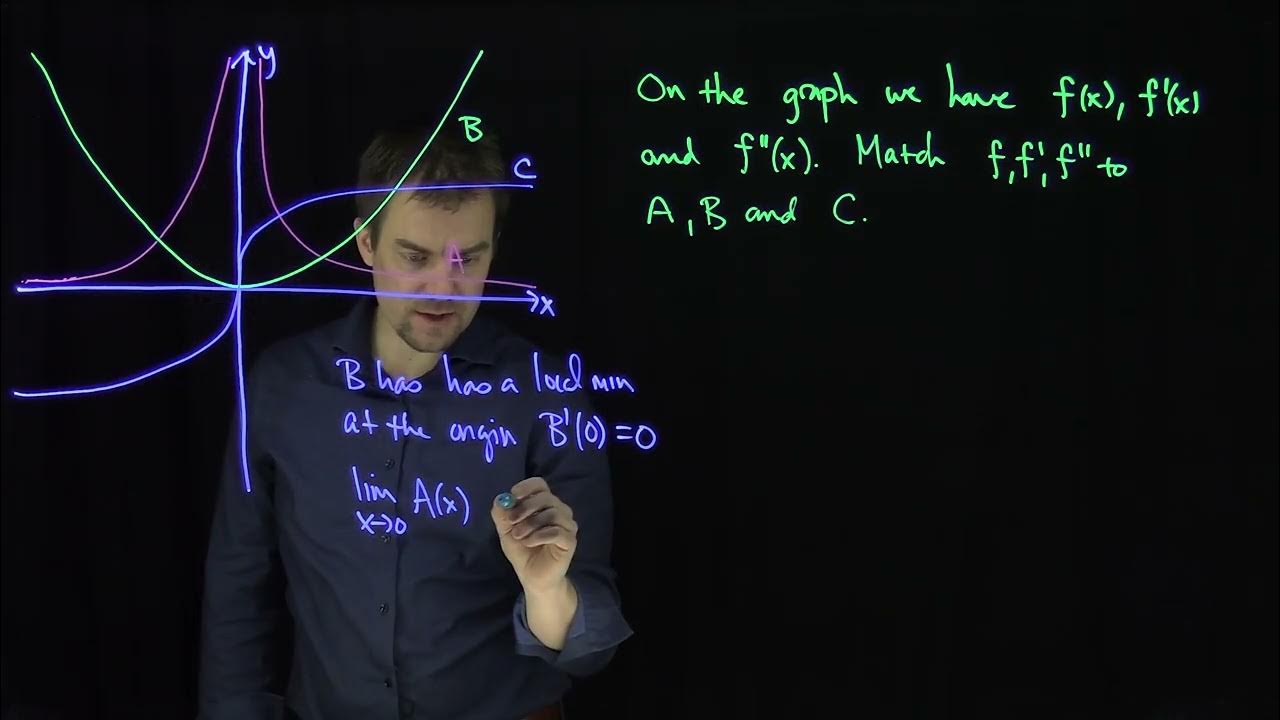 y
B
C
A
x
On the graph we have f(x), f'(x)
and f"(x). Match f, f', f" to
A, B and C.
B has has a local min
at the origin B'(0) = 0
lim A(x)
x→0